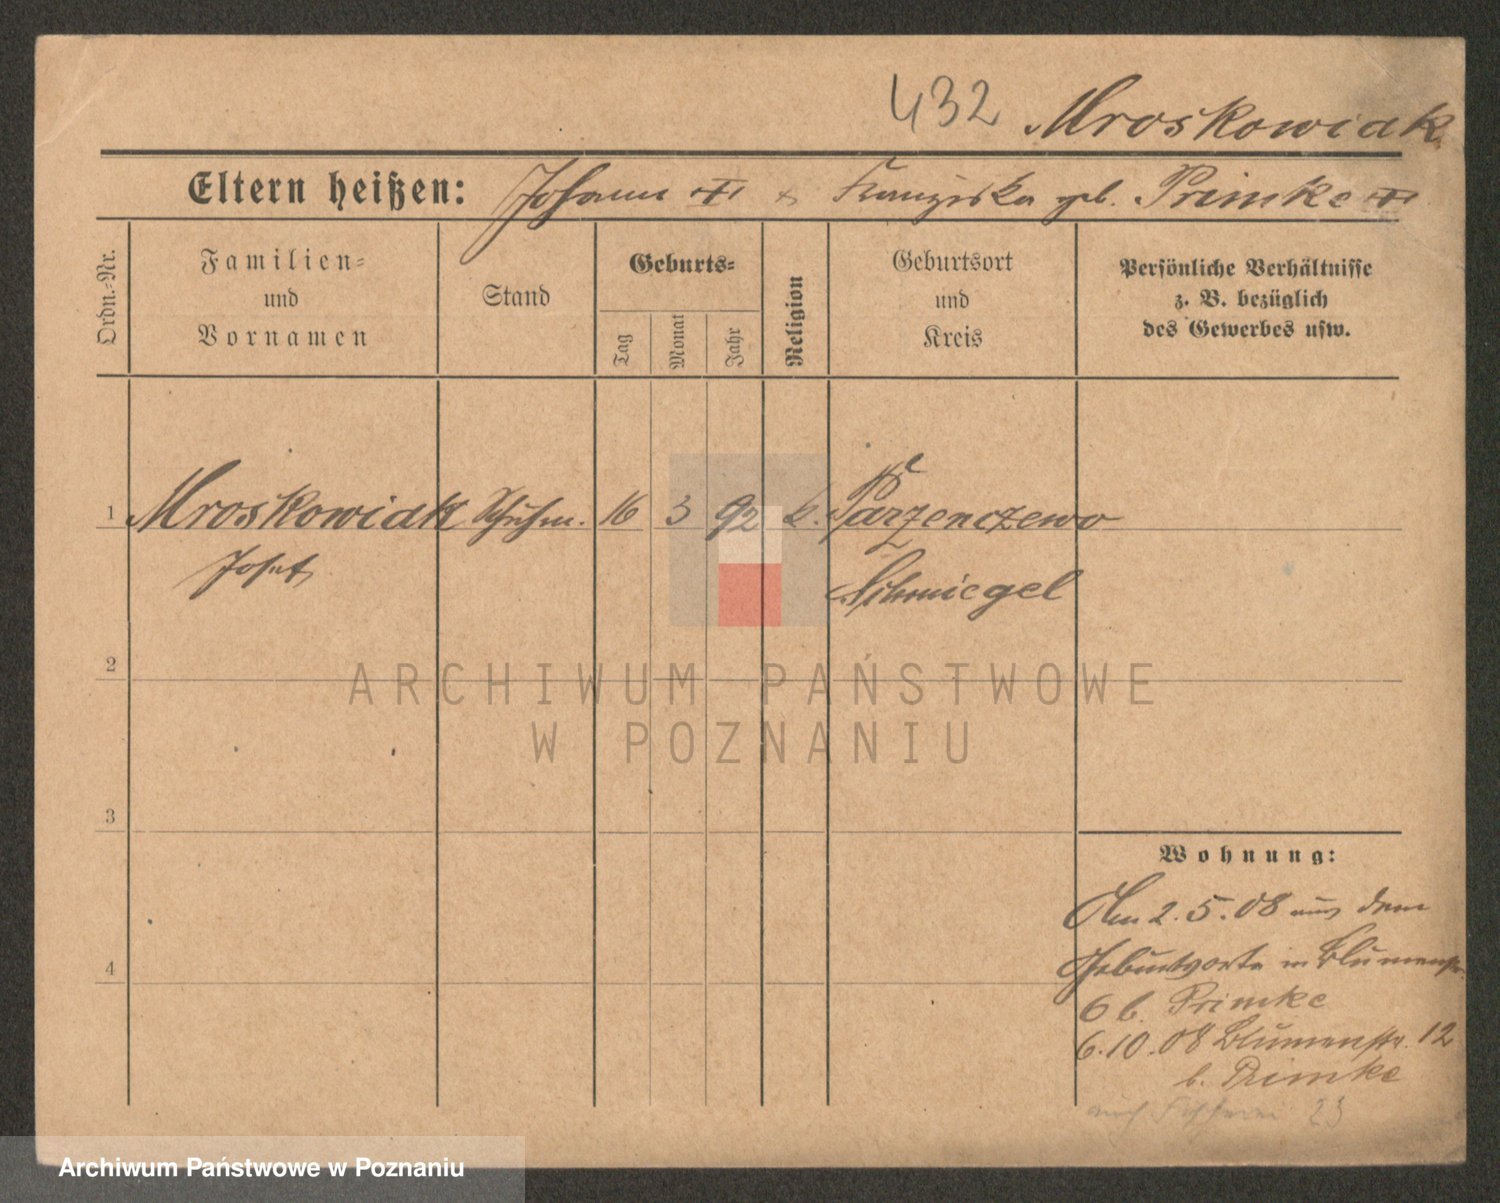 432 Mroskowiak
Eltern heißen: Johann & Franziska geb. Primke
Ordn.-Nr.
Familien-
und
Vornamen
Stand
Geburts-
Tag
Monat
Jahr
Religion
Geburtsort
und
Kreis
Persönliche Verhältnisse
z. B. bezüglich
des Gewerbes usw.
1 Mroskowiak Schuhm. 16 3 92 k. Parzenczewo
Josef Schmiegel
2
3
4
Wohnung:
Am 2.5.08 aus dem
Geburtsorte in Blumenstr.
6 b. Primke
6.10.08 Blumenstr. 12
b. Primke
23
ARCHIWUM PAŃSTWOWE
W POZNANIU
Archiwum Państwowe w Poznaniu